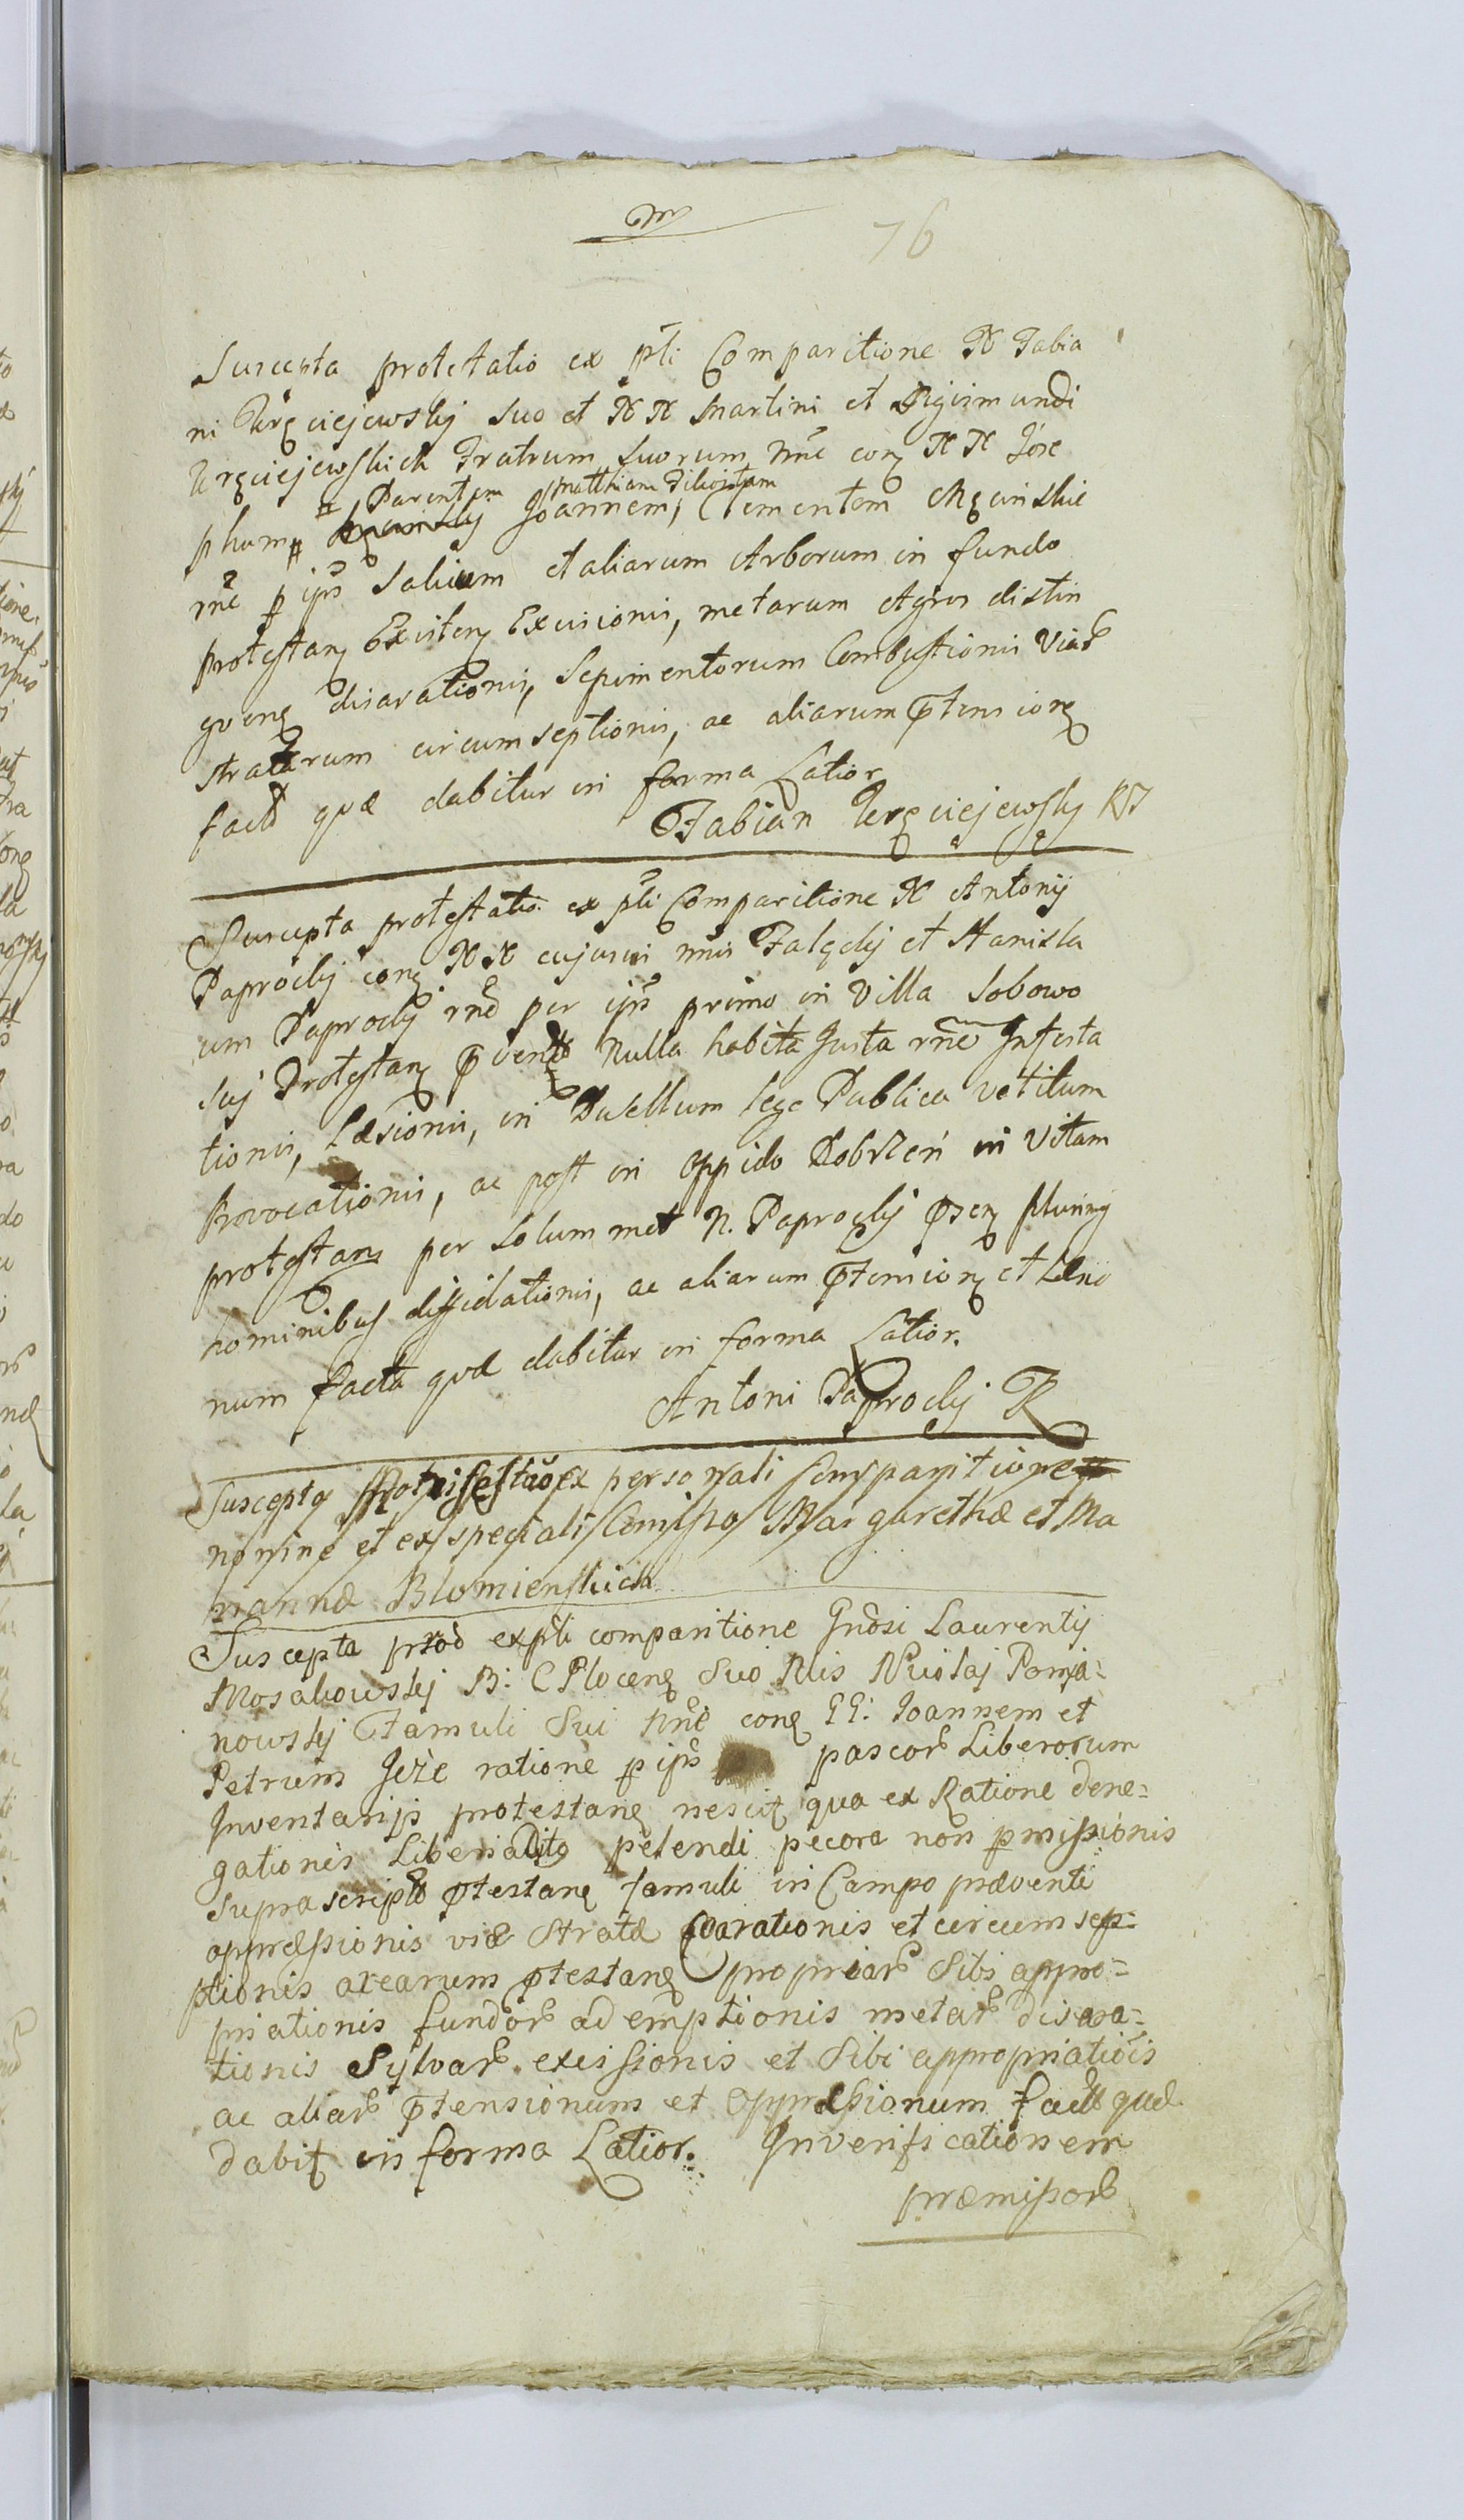 76
Suscepta protetatio ex pti Comparitione N Fabia
ni Krzciejewskj Suo et N N Martini et Sigismundi
Krzciejewskich Fratrum Suorum nne con N N Jose
Parentem Matthiam Filiositam
phum Joannem, Clementem
rne p ips Salicum et aliarum Arborum in fundo
protestan Existen Excisionis, metarum Agros distin
gven disarationis, Sepimentorum Combustionis Viar
stratarum circumseptionis, ac aliarum ptension
facta quæ dabitur in forma Latior
Fabian Krzciejewsky
Suscepta protestatio ex pti Comparitione N Antonij
Paprockj con N N cujusvis nnis Falęckj et Stanisla
um Paprockj rne per ips primo in Villa Sobowo
Suj Protestan pvent Nulla habita Justa rne Infesta
tionis, Læsionis, in Duellum lege Publica vetitum
Provocationis, ac post in Oppido Dobrzeń in Vitam
protestans per Solummet N. Paprockj psen pluring
hominibus dissidationis, ac aliarum ptension et Læsio
num facta quæ dabitur in forma Latior.
Antoni Paprockj
Suscepta Protestao ex personali Comparitione
nomine et ex speciali Comisso Margarethæ et Ma
riannæ Blomienskich
Suscepta prtõo ex pti comparitione Gnosi Laurentij
Mosakowskj B: C Plocen Suo Nis Nicolaj Pomia-
nowskj Famuli Sui nne con GG: Joannem et
Petrum Jeże ratione p ips pascor Liberorum
Inventarijs protestan nescit qua ex Ratione dene-
gationis Liberi aditg petendi pecora non pmissionis
supra script ptestan famuli in Campo præventi
appræssionis viæ Stratæ Exarationis et circumsep-
ptionis arearum ptestan propriar Sibi appro-
priationis fundor ademptionis metar disara-
tionis Sylvar excissionis et Sibi appropriatiois
ac aliar ptensionum et oppræssionum facta quæ
dabit in forma Latior. In verificationem
præmissor